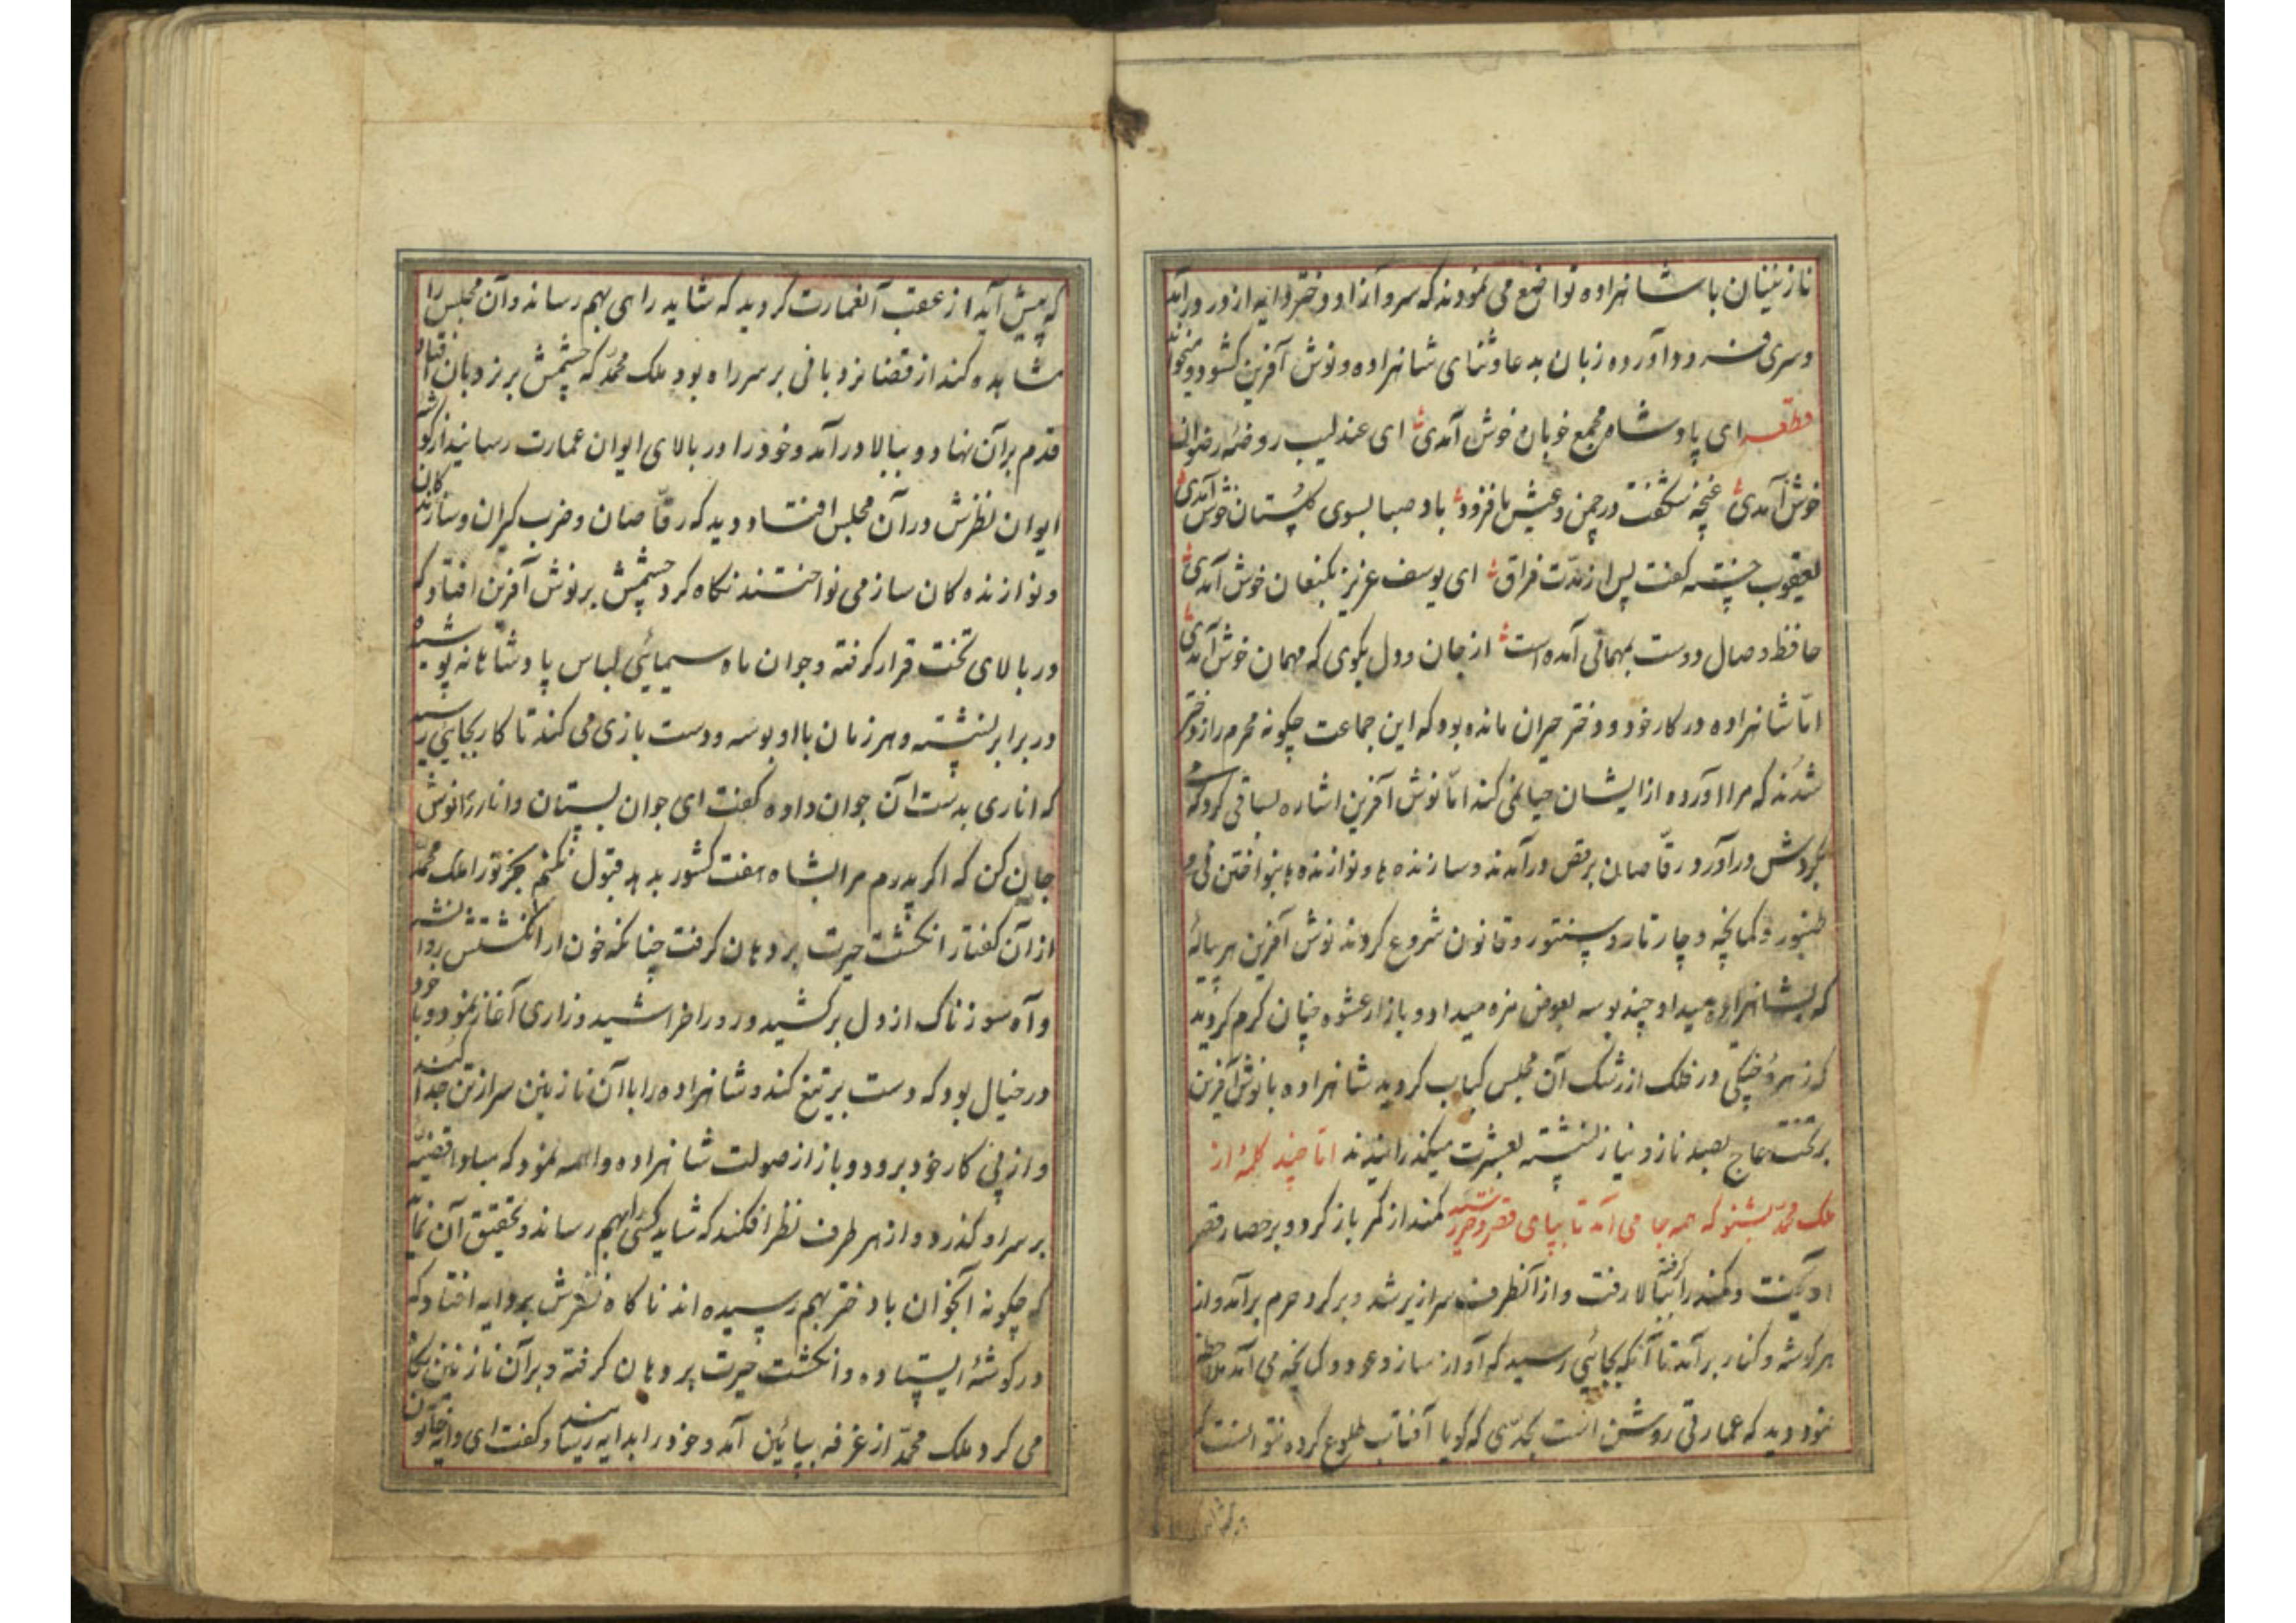 نازنینان با شاهزاده تواضع می نمودند که سرو آزاد و دختر دایه از در درآمد
و سری فرود آورده زبان بدعا و ثنای شاهزاده و نوش آفرین کشود و میخواند
قطعه ای پادشاه مجمع خوبان خوش آمدی ای عندلیب روضه رضوان
خوش آمدی غنچه شکفت در چمن و عیش ها فزود باد صبا بسوی کلستان خوش آمدی
یعقوب خسته کفت پس از مدت فراق ای یوسف عزیز بکنعان خوش آمدی
حافظ وصال دوست بمهمانی آمده است از جان و دل بکوی که مهمان خوش آمدی
امّا شاهزاده در کار خود و دختر حیران مانده بود که این جماعت چکونه محرم راز دختر
شدند که مرا آورده از ایشان حیا نمی کند امّا نوش آفرین اشاره بساقی کرد که می
بکردش درآورد رقّاصان برقص درآمدند و سازنده ها و نوازنده ها بنواختن نی و
طنبور و کمانچه و چارتار و سنتور و قانون شروع کردند نوش آفرین هر پیاله
که بشاهزاده میداد چند بوسه بعوض مزه میداد و بازار عشوه چنان کرم کردید
که زهره چنکی در فلک از رشک آن مجلس کباب کردید شاهزاده با نوش آفرین
بر تخت عاج بصد ناز و نیاز نشسته بعشرت میکذرانیدند امّا چند کلمه از
ملک محمّد بشنو که همه جا می آمد تا بپای قصر دختر رسید کمند از کمر باز کرد و بر حصار قصر
آویخت و کمند را کرفته ببالا رفت و از آنطرف سرازیر شد و بر کرد حرم برآمد و از
هر کوشه و کنار برآمد تا آنکه بجائی رسید که آواز ساز و عود و کمانچه می آمد ملاحظه
نمود دید که عمارتی روشن است بحدّی که کویا آفتاب طلوع کرده نتوانست
که پیش آید از عقب آنعمارت کردید که شاید راهی بهم رساند و آن مجلس را
مشاهده کند از قضا نردبانی بر سر راه بود ملک محمّد که چشمش بر نردبان افتاد
قدم بر آن نهاد و ببالا درآمد و خود را در بالای ایوان عمارت رسانید از کوشه
ایوان نظرش در آن مجلس افتاد دید که رقّاصان و ضرب کیران و سازنده کان
و نوازنده کان ساز می نواختند نکاه کرد چشمش بر نوش آفرین افتاد که
در بالای تخت قرار کرفته و جوان ماه سیمائی لباس پادشاهانه پوشیده
در برابر نشسته و هر زمان با او بوسه و دست بازی می کند تا کار بجائی رسید
که اناری بدست آن جوان داده کفت ای جوان بستان و انار را نوش
جان کن که اکر پدرم مرا بشاه هفت کشور بدهد قبول نکنم بجز تو را ملک محمّد
از آن کفتار انکشت حیرت بر دهان کرفت چنانکه خون از انکشتش روانه شد
و آه سوزناک از دل برکشید و رو را خراشید و زاری آغاز نمود و با خود
در خیال بود که دست بر تیغ کند و شاهزاده را با آن نازنین سر از تن جدا کند
و از پی کار خود برود و باز از صولت شاهزاده واهمه نمود که مبادا قضیّه
بر سر او کذرد و از هر طرف نظر افکند که شاید کسی را بهم رساند و تحقیق آن نماید
که چکونه آنجوان با دختر بهم رسیده اند ناکاه نظرش بر دایه افتاد که
در کوشه ایستاده و انکشت حیرت بر دهان کرفته و بر آن نازنین نکاه
می کرد ملک محمّد از غرفه بپائین آمد و خود را بدایه رسانید و کفت ای دایه